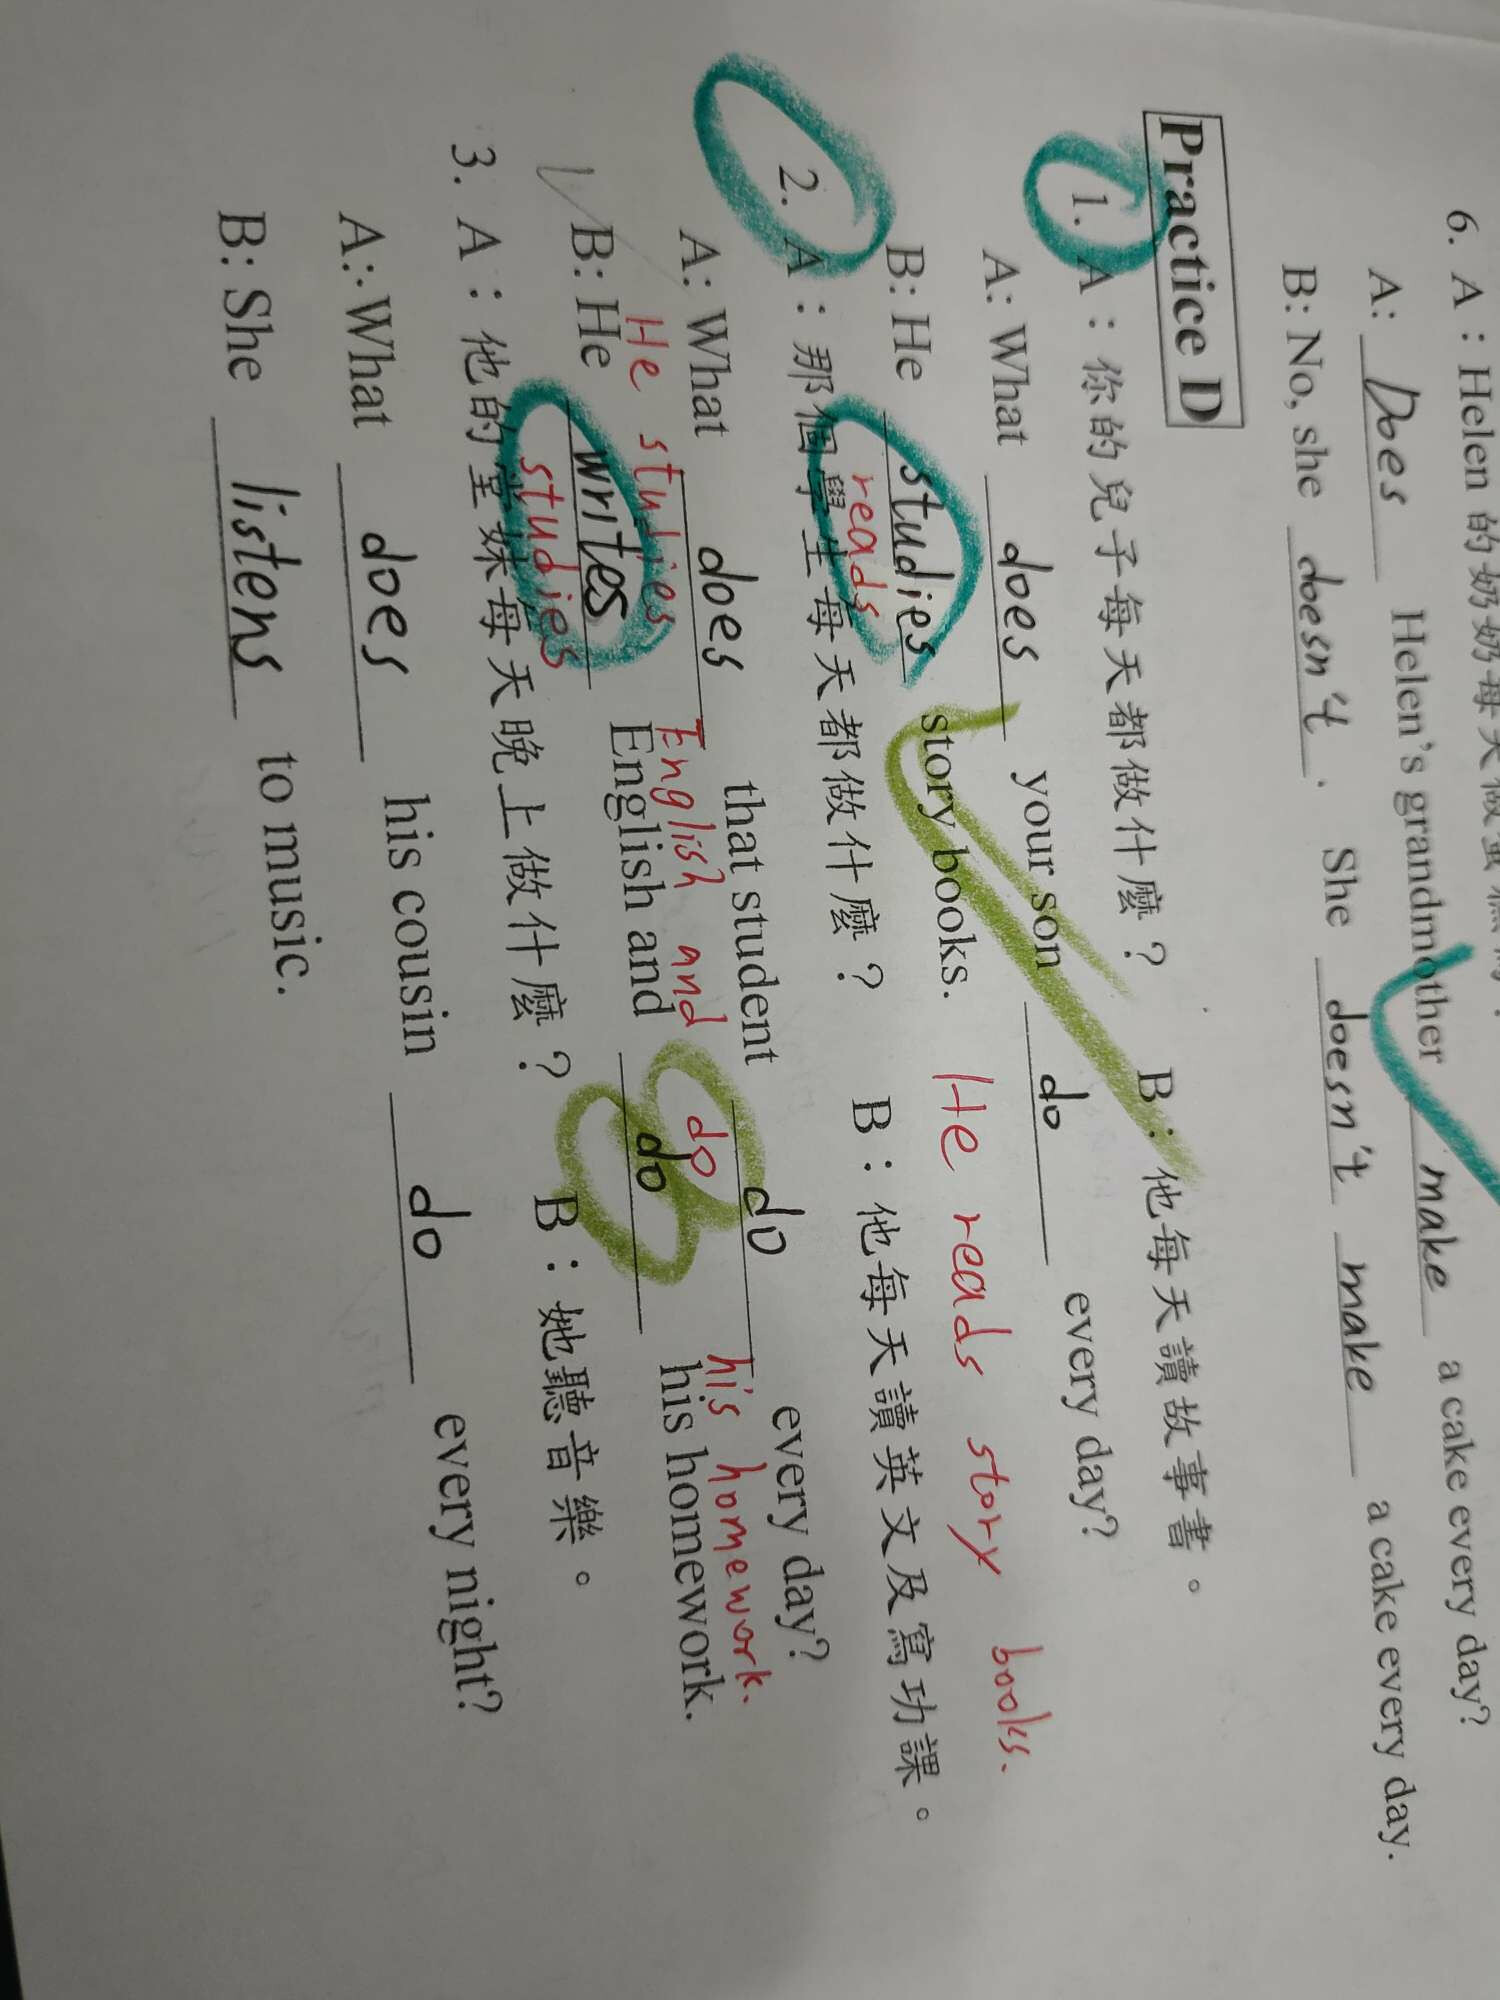 6. A：Helen 的奶奶每天做蛋糕
A: Does Helen's grandmother make a cake every day?
B: No, she doesn't. She doesn't make a cake every day.
Practice D
1. A：你的兒子每天都做什麼？ B：他每天讀故事書。
A: What does your son do every day?
B: He studies story books. He reads story books.
reads
2. A：那個學生每天都做什麼？ B：他每天讀英文及寫功課。
A: What does that student do every day?
He studies English and do his homework.
B: He writes English and do his homework.
studies
3. A：他的堂妹每天晚上做什麼？ B：她聽音樂。
A: What does his cousin do every night?
B: She listens to music.